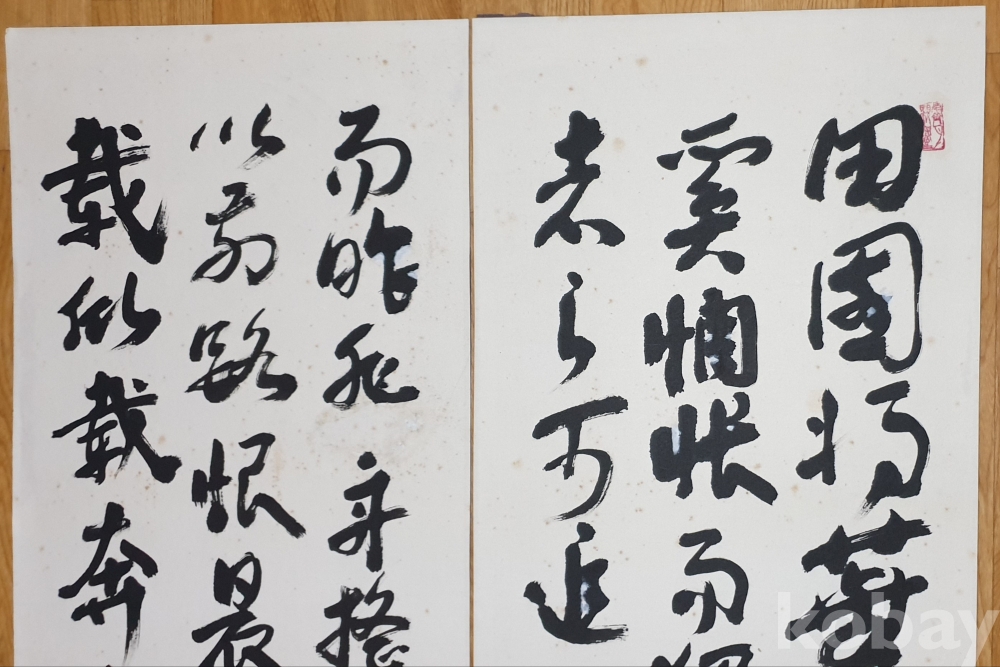 田園將蕪
奚惆悵而獨
者之可追
而昨非舟搖
以前路恨晨
載欣載奔
kobay